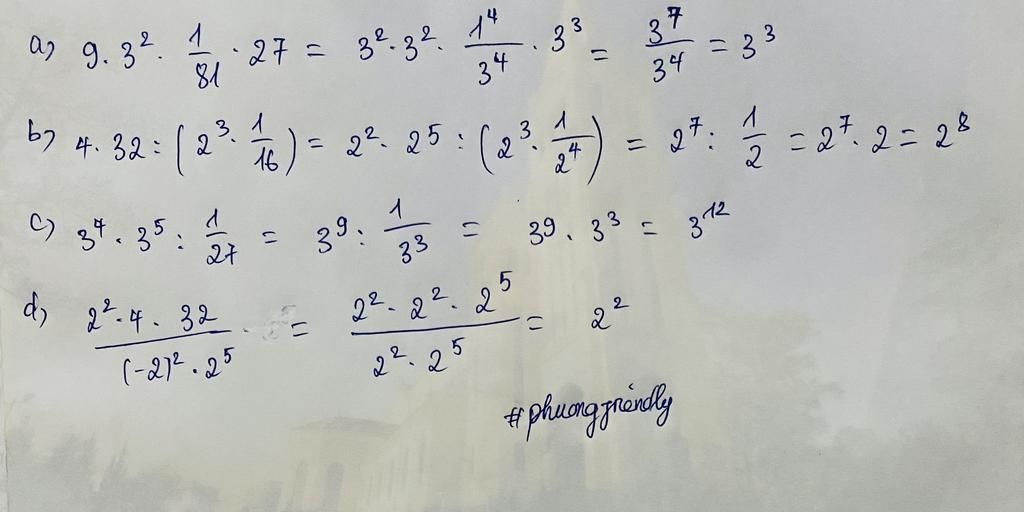 a) 9 . 3² . 1/81 . 27 = 3² . 3² . 1⁴/3⁴ . 3³ = 3⁷/3⁴ = 3³
b) 4 . 32 : (2³ . 1/16) = 2² . 2⁵ : (2³ . 1/2⁴) = 2⁷ : 1/2 = 2⁷ . 2 = 2⁸
c) 3⁴ . 3⁵ : 1/27 = 3⁹ : 1/3³ = 39 . 3³ = 3¹²
d) 2² . 4 . 32 / (-2)² . 2⁵ = 2² . 2² . 2⁵ / 2² . 2⁵ = 2²
#phuongfriendly